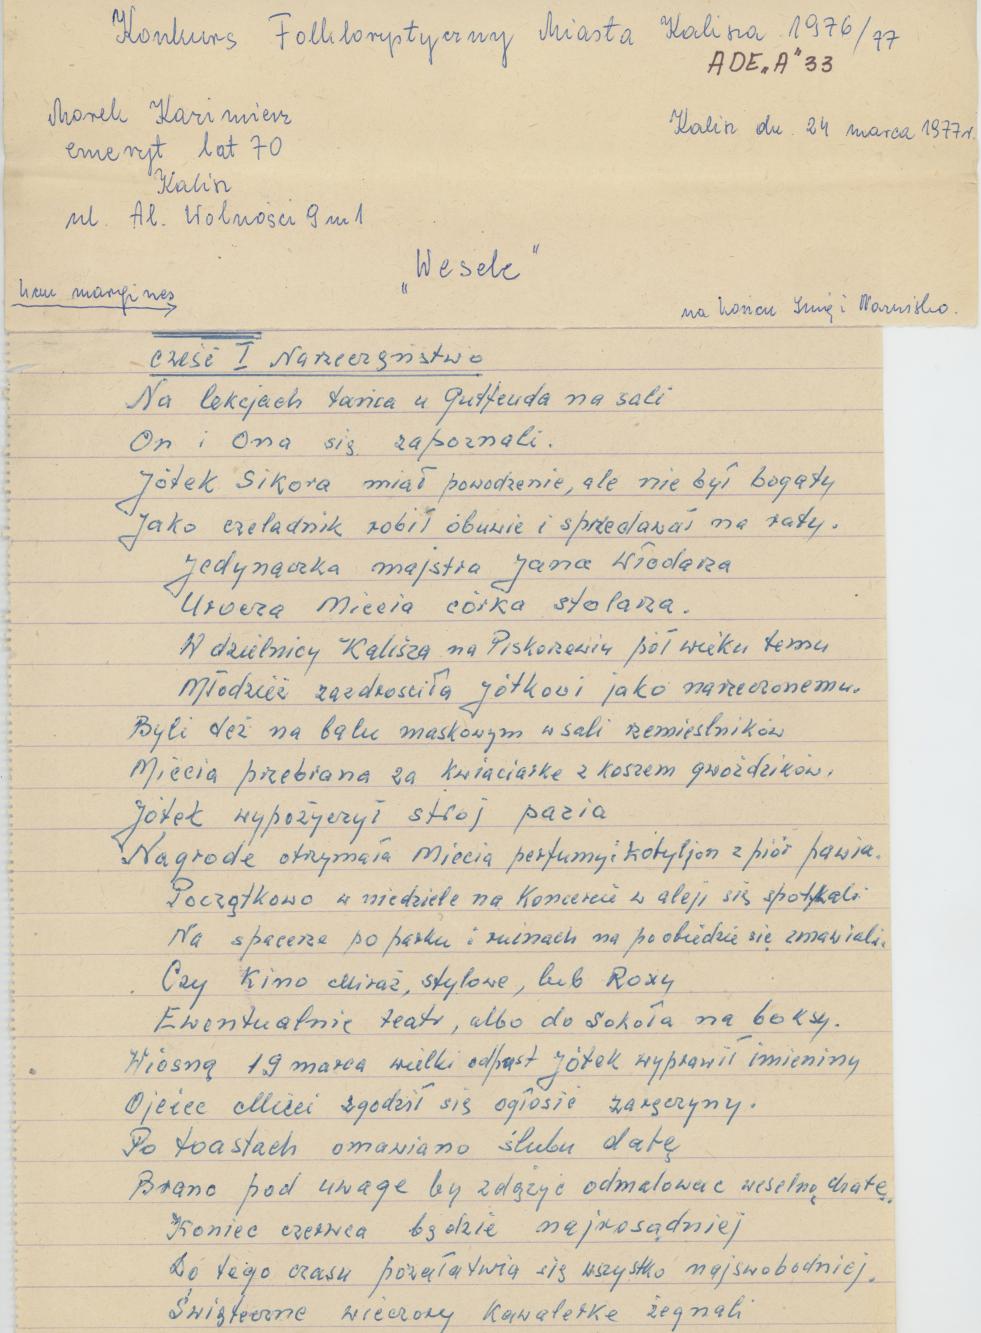 Konkurs Folklorystyczny Miasta Kalisza 1976/77
ADE „A" 33
Marek Kazimierz
Kalisz dn. 24 marca 1977r.
emeryt lat 70
Kalisz
ul. Al. Wolności 9 m 1
„Wesele"
margines
na końcu Imię i Nazwisko.
Cześć I Narzeczeństwo
Na lekcjach tańca u na sali
On i Ona się zapoznali.
Jótek Sikora miał powodzenie, ale nie był bogaty
Jako czeladnik robił obuwie i sprzedawał na raty.
Jedynaczka majstra Jana Włodarza
Urocza Miecia córka stolarza.
W dzielnicy Kalisza na Piskorzewiu pół wieku temu
Młodzież zazdrościła Jótkowi jako narzeczonemu.
Byli też na balu maskowym w sali rzemieślników
Miecia przebrana za kwiaciarke z koszem gwoździków.
Jótek wypożyczył strój pazia
Nagrode otrzymała Miecia perfumy i kotyljon z piór pawia.
Początkowo w niedziele na koncercie w aleji się spotykali
Na spacerze po parku i ruinach na poobiedzie się zmawiali.
Czy Kino Miraż, stylowe, lub Roxy
Ewentualnie teatr, albo do Sokoła na boksy.
Wiosną 19 marca wielki odpust Jótek wyprawił imieniny
Ojciec Mieci zgodził się ogłosić zaręczyny.
Po toastach omawiano ślubu datę
Brano pod uwage by zdążyć odmalować weselną chatę.
Koniec czerwca będzie najrosądniej
Do tego czasu pozałatwia się wszystko najswobodniej.
Świąteczne wieczory kawalerkę żegnali